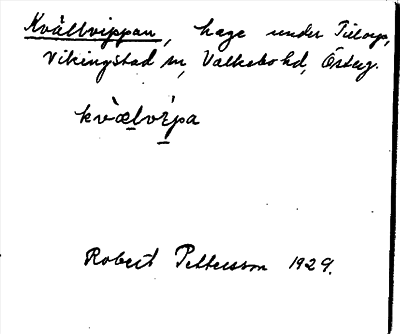 Kvällvippan, hage under Tutorp,
Vikingstad sn, Valkebo hd, Östug.
kvælvipa
Robert Pettersson 1929.